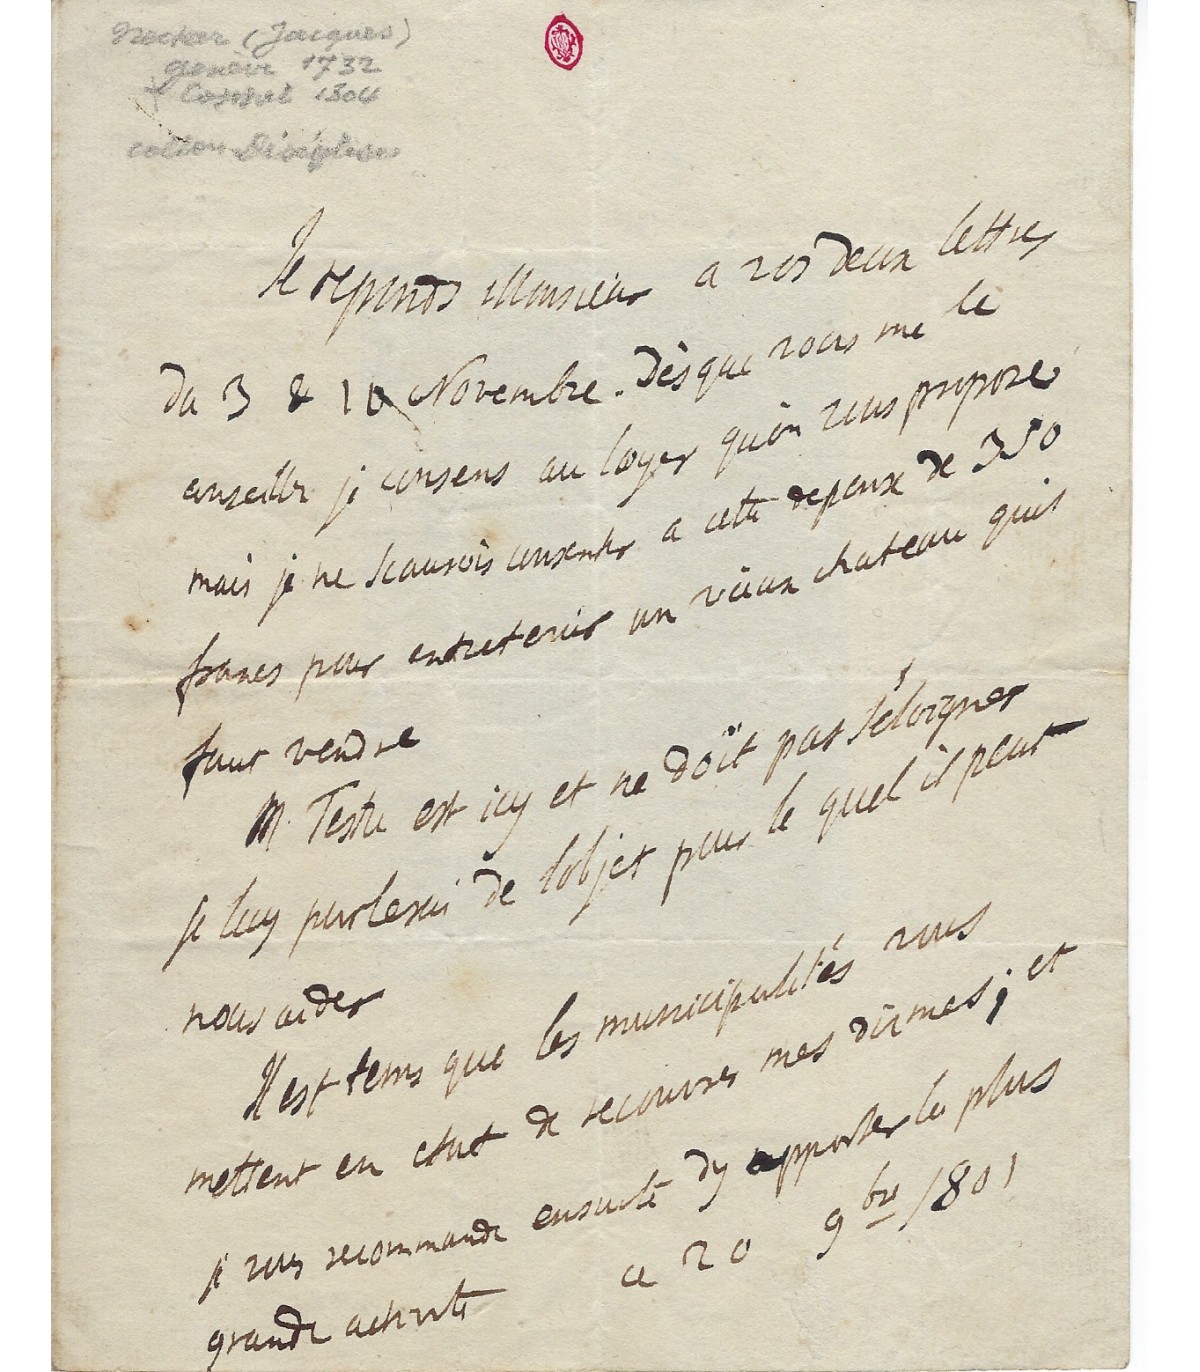 Necker (Jacques)
Genève 1732
Coppet 1804
Je reponds Monsieur a vos deux lettres
du 3 & 10 Novembre. Dès que vous me le
conseillez je consens au loyer qu'on vous propose
mais je ne scaurois consentir a cette depense de 350
francs pour entretenir un vieux chateau quil
faut vendre
M. Teste est icy et ne doit pas s'éloigner
je luy parlerai de lobjet pour le quel il peut
nous aider
Il est tems que les municipalités vous
mettent en etat de recouvrer mes dixmes; et
je vous recommande ensuite dy apporter la plus
grande activité
ce 20 9bre 1801